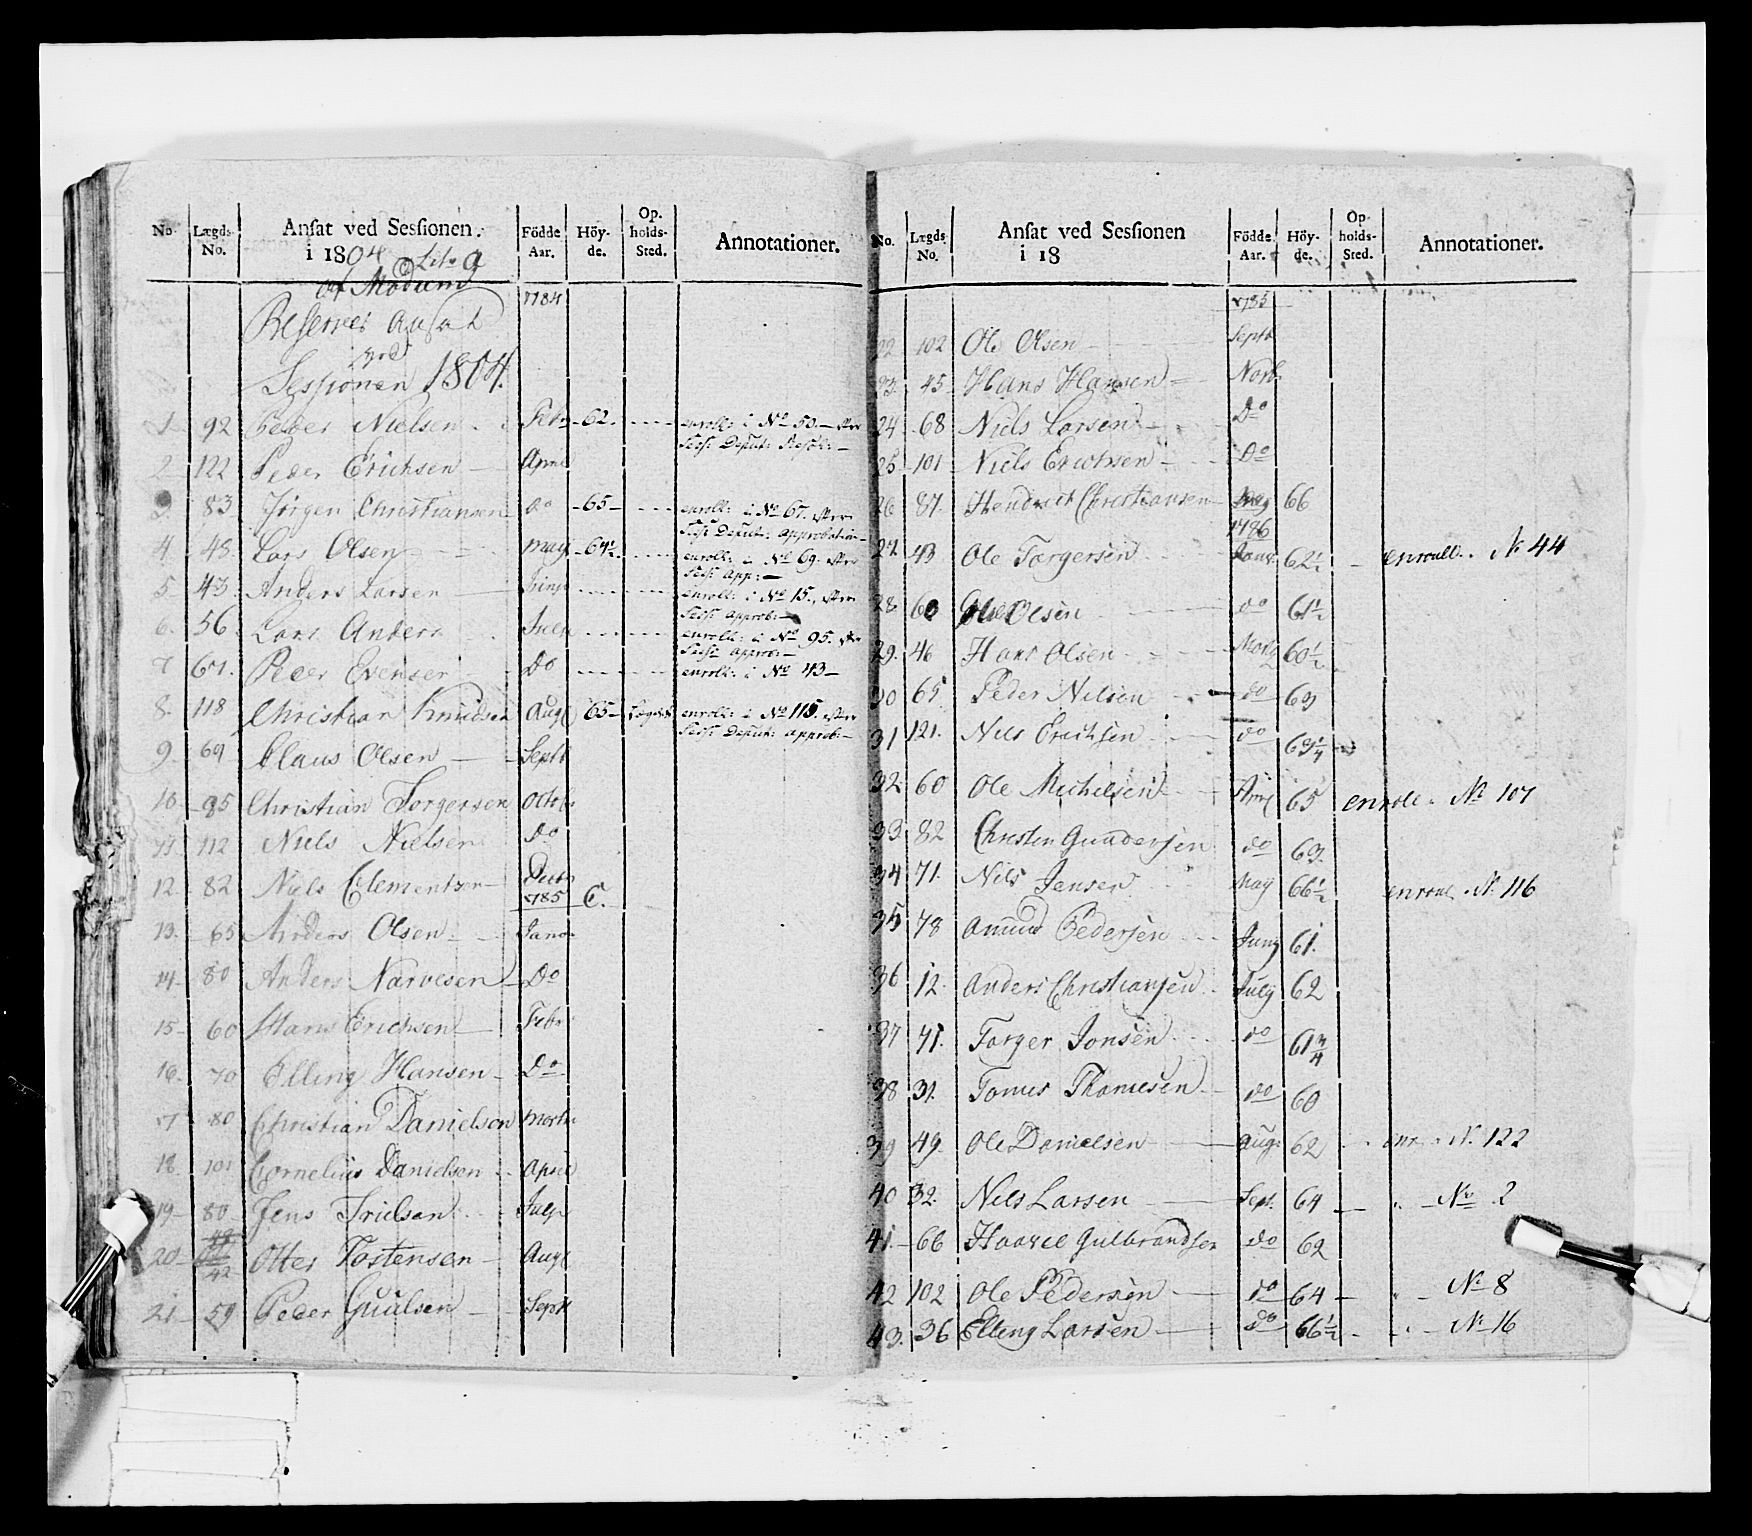 No. Lægds No. Ansat ved Sessionen. i 1804 Födde Aar. Höyde. Opholds-Sted. Annotationer.
Litr a
af Modum
Reserver ansat 1784
ved
Sessionen 1804.
1 92 Peder Nielsen Febr 62. enroll: i No 50.
Sess: Deput: Resol:
2 122 Peder Erichsen April
3. 83 Jørgen Christiansen do 65 enroll: i No 67.
Sess: Deput: Approbation
4. 48 Lars Olsen May 64½ enroll: i No 69.
Sess: App:
5 43 Anders Larsen enroll: i No 15.
Sess: Approb:
6. 56 Lars Anders July enroll: i No 95.
Sess: Approb:
7 67. Peder Evensen Do enroll: i No 43
8. 118 Christian Knudsen Aug 65 enroll: i No 115.
Sess: Deput: Approb:
9. 69 Claus Olsen Septb
10. 95 Christian Torgersen Octob
11 112 Niels Nielsen Do
12. 82 Niels Clementsen Decb
1785 C.
13. 65 Anders Olsen Janv
14 80 Anders Narvesen Do
15 60 Hans Erichsen Febr
16. 70 Elling Hansen Do
17 80 Christian Danielsen Marti
18. 101 Cornelius Danielsen April
19 80 Jens July
20 42 Otter Tostensen Aug
21 59 Peder Septb
No. Lægds No. Ansat ved Sessionen i 18 Födde Aar. Höyde. Opholds-Sted. Annotationer.
1785
22 102 Ole Olsen Septb
23. 45 Hans Hansen Novb
24 68 Niels Larsen Do
25 101 Niels Erichsen Do
26 87. Hendrich Christiansen 66
1786
27. 43 Ole Torgersen Janv 62½ enroull. No 44
28 60 Ole Olsen do 61½
29. 46 Hans Olsen 60½
30 65 Peder Nilsen do 63
31 121. Nils Erichsen do 63¼
32 60 Ole Michelsen 65 enroll. No 107
33 82 Christen Gundersen do 63.
34 71. Nils Jensen May 66½ enroul. No 116
35 78 Amund Pedersen Juny 61.
36 12. Anders Christiansen July 62
37 41. Torger Jonsen do 61¾
38 31. Tomes Thomesen do 60
39 49. Ole Danielsen Aug. 62 enr. No 122
40 32. Nils Larsen Sept. 64 " No 2
41. 66 Haavel Gulbrandsen do 62
42 102 Ole Pedersen do 64 " No 8
43. 36 Elling Larsen do 66½ " No 16